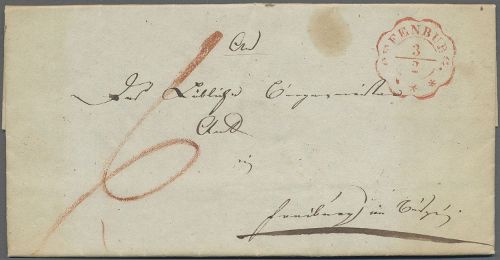 OFFENBURG
3
2
An
Das Löbliche Bürgermeister
Amt
in
Freiburg im
6